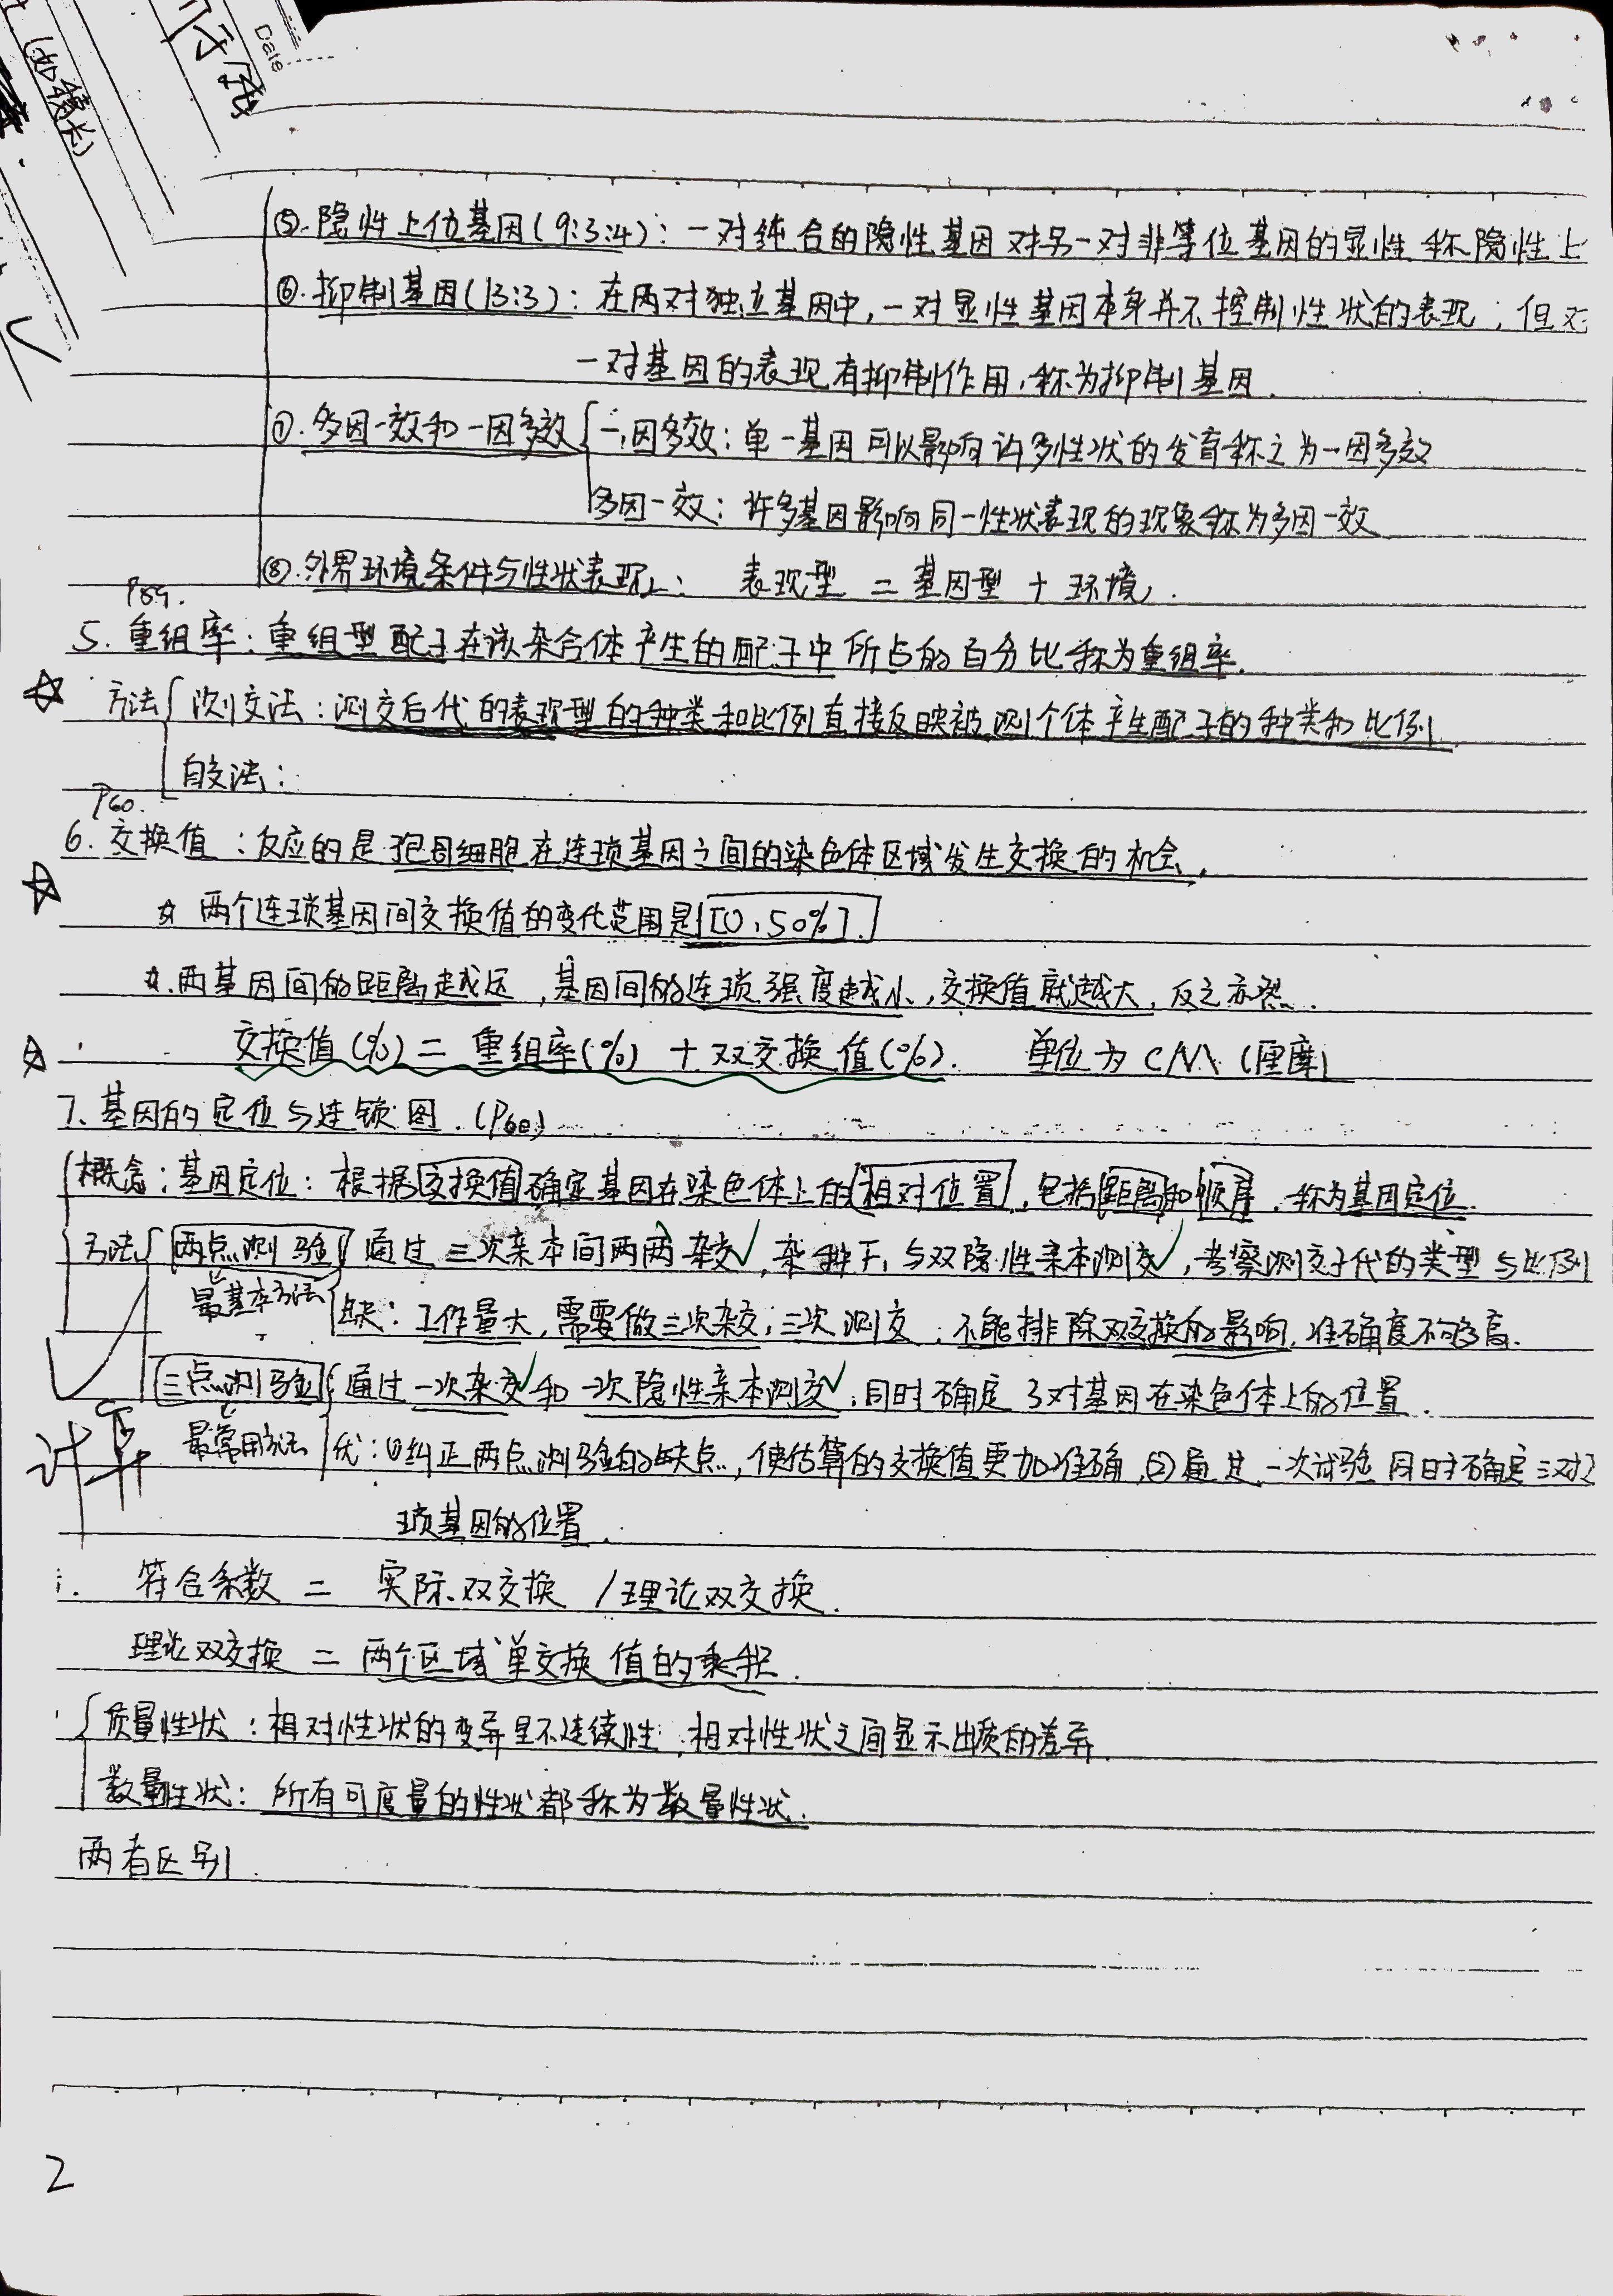 Date
⑤.隐性上位基因(9:3:4):一对纯合的隐性基因对另一对非等位基因的显性 称隐性上
⑥.抑制基因(13:3):在两对独立基因中,一对显性基因本身并不控制性状的表现;但对
一对基因的表现有抑制作用,称为抑制基因.
⑦.多因一效和一因多效 一因多效:单一基因可以影响许多性状的发育称之为一因多效
多因一效:许多基因影响同一性状表现的现象称为多因一效
⑧.外界环境条件与性状表现上: 表现型 = 基因型 + 环境.
P59.
5. 重组率:重组型配子在该杂合体产生的配子中所占的百分比称为重组率.
☆ 方法 测交法:测交后代的表现型的种类和比例直接反映被测个体产生配子的种类和比例
自交法:
P60.
6. 交换值:反应的是孢母细胞在连锁基因之间的染色体区域发生交换的机会.
☆ ☆ 两个连琐基因间交换值的变化范围是[0,50%].
☆.两基因间的距离越远,基因间的连琐强度越小,交换值就越大,反之亦然.
☆ 交换值(%) = 重组率(%) + 双交换值(%). 单位为 cM (厘摩)
7. 基因的定位与连锁图.(P60)
概念:基因定位:根据交换值确定基因在染色体上的相对位置,包括距离和顺序.称为基因定位.
方法 两点测验 通过三次亲本间两两杂交✓,杂种F₁与双隐性亲本测交✓,考察测交子代的类型与比例
最基本方法 缺:工作量大,需要做三次杂交;三次测交;不能排除双交换的影响,准确度不够高.
三点测验 通过一次杂交✓和一次隐性亲本测交✓,同时确定3对基因在染色体上的位置.
计算 最常用方法 优:①纠正两点测验的缺点,使估算的交换值更加准确,②通过一次试验同时确定三对
琐基因的位置.
符合系数 = 实际双交换 / 理论双交换.
理论双交换 = 两个区域单交换值的乘积.
质量性状:相对性状的变异呈不连续性,相对性状之间显示出质的差异.
数量性状:所有可度量的性状都称为数量性状.
两者区别.
2